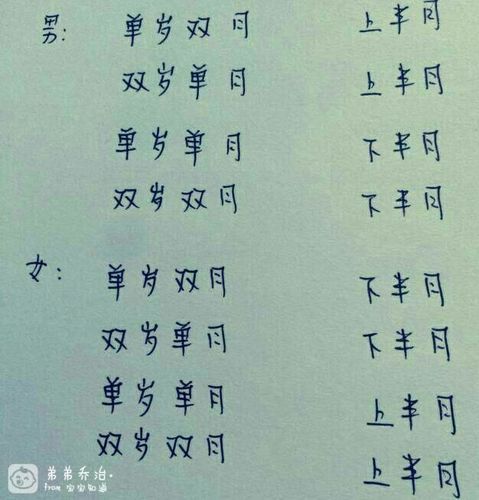 男: 单岁双月 上半月
双岁单月 上半月
单岁单月 下半月
双岁双月 下半月
女: 单岁双月 下半月
双岁单月 下半月
单岁单月 上半月
双岁双月 上半月
弟弟乔治.
from 宝宝知道